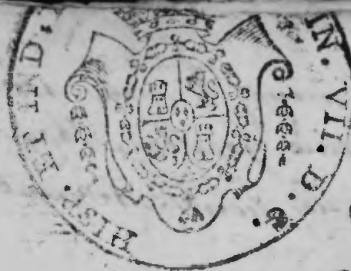 IN. VII. D. G. HISP. ET IND.